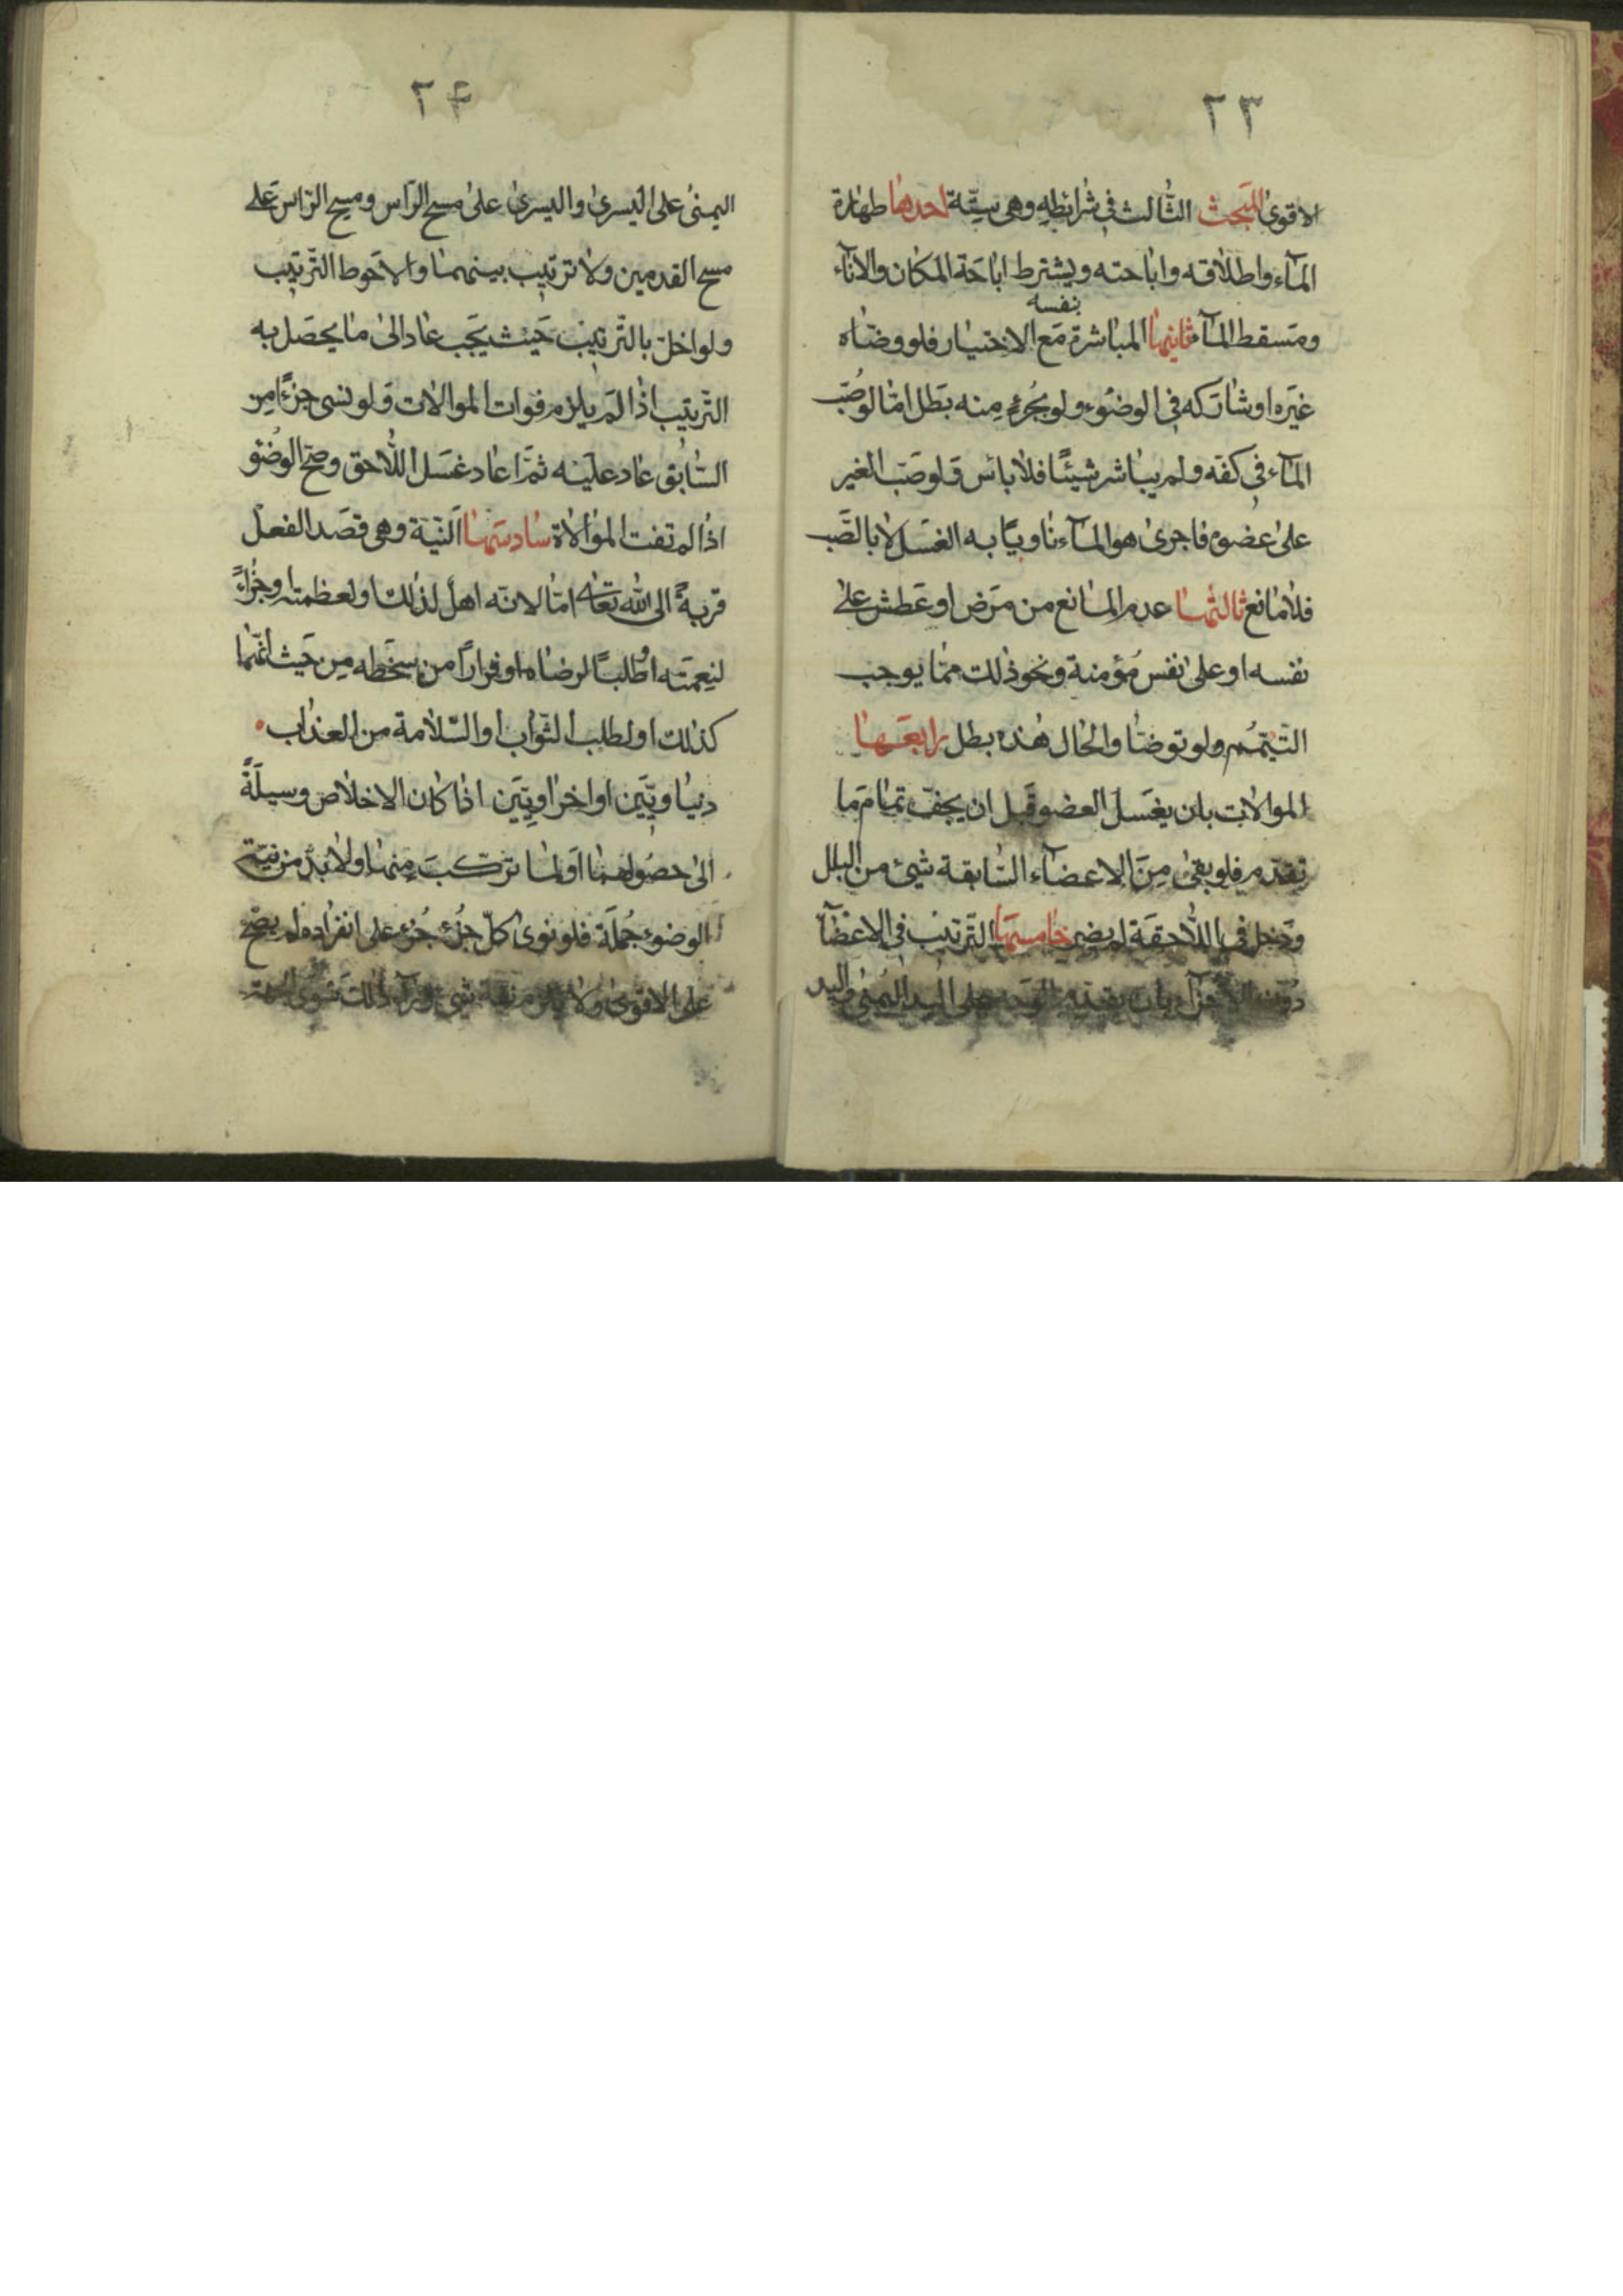 ٢٣
الاقوى المبحث الثالث في شرائطه وهى ستّة احدها طهارة
المآء واطلاقه واباحته ويشترط اباحة المكان والانآء
نفسه
ومسقط المآء ثانيها المباشرة مع الاختيار فلو وضّاه
غيره او شاركه في الوضوء ولو بجزء منه بطل امّا لو صُبّ
المآء في كفّه ولم يباشر شيئًا فلا باس ولو صبّ الغير
على عضوه فاجرى هو المآء ناويًا به الغسل لا بالصّب
فلا مانع ثالثها عدم المانع من مرض او عطش على
نفسه او على نفس مؤمنة ونحو ذلك ممّا يوجب
التيمّم ولو توضّا والحال هذه بطل رابعها
الموالات بان يغسل العضو قبل ان يجفّ تمام ما
تقدم فلو بقى من الاعضآء السّابقة شيئ من البلل
ودخل في اللاحقة لم يضر خامسها الترتيب في الاعضآ
دون الاجزآء بان يقدم الوجه على اليد اليمنى واليد
٢٤
اليمنى على اليسرى واليسرى على مسح الرّاس ومسح الرّاس على
مسح القدمين ولا ترتيب بينهما والاحوط الترتيب
ولو اخلّ بالترتيب حيث يجب عاد الى ما يحصل به
الترتيب اذا لم يلزم فوات الموالات ولو نسى جزءًا من
السّابق عاد عليه ثمّ اعاد غسل اللاحق وصحّ الوضؤ
اذا لم تفت الموالاة سادستها النّية وهى قصد الفعل
قربةً الى الله تعالى امّا لانّه اهل لذلك او لعظمته او جزاءً
لنعمته او طلبًا لرضاه او فرارًا من سخطه من حيث انهما
كذلك او لطلب الثواب او السّلامة من العذاب
دنياويّين او اخراويّين اذا كان الاخلاص وسيلةً
الى حصولهما او لما تركّب منها ولا بدّ من نيّة
الوضوء جُملة فلو نوى كلّ جزء جزء على انفراده لم يصحّ
على الاقوى ولا يلزم نيّة شى ورآء ذلك سوى